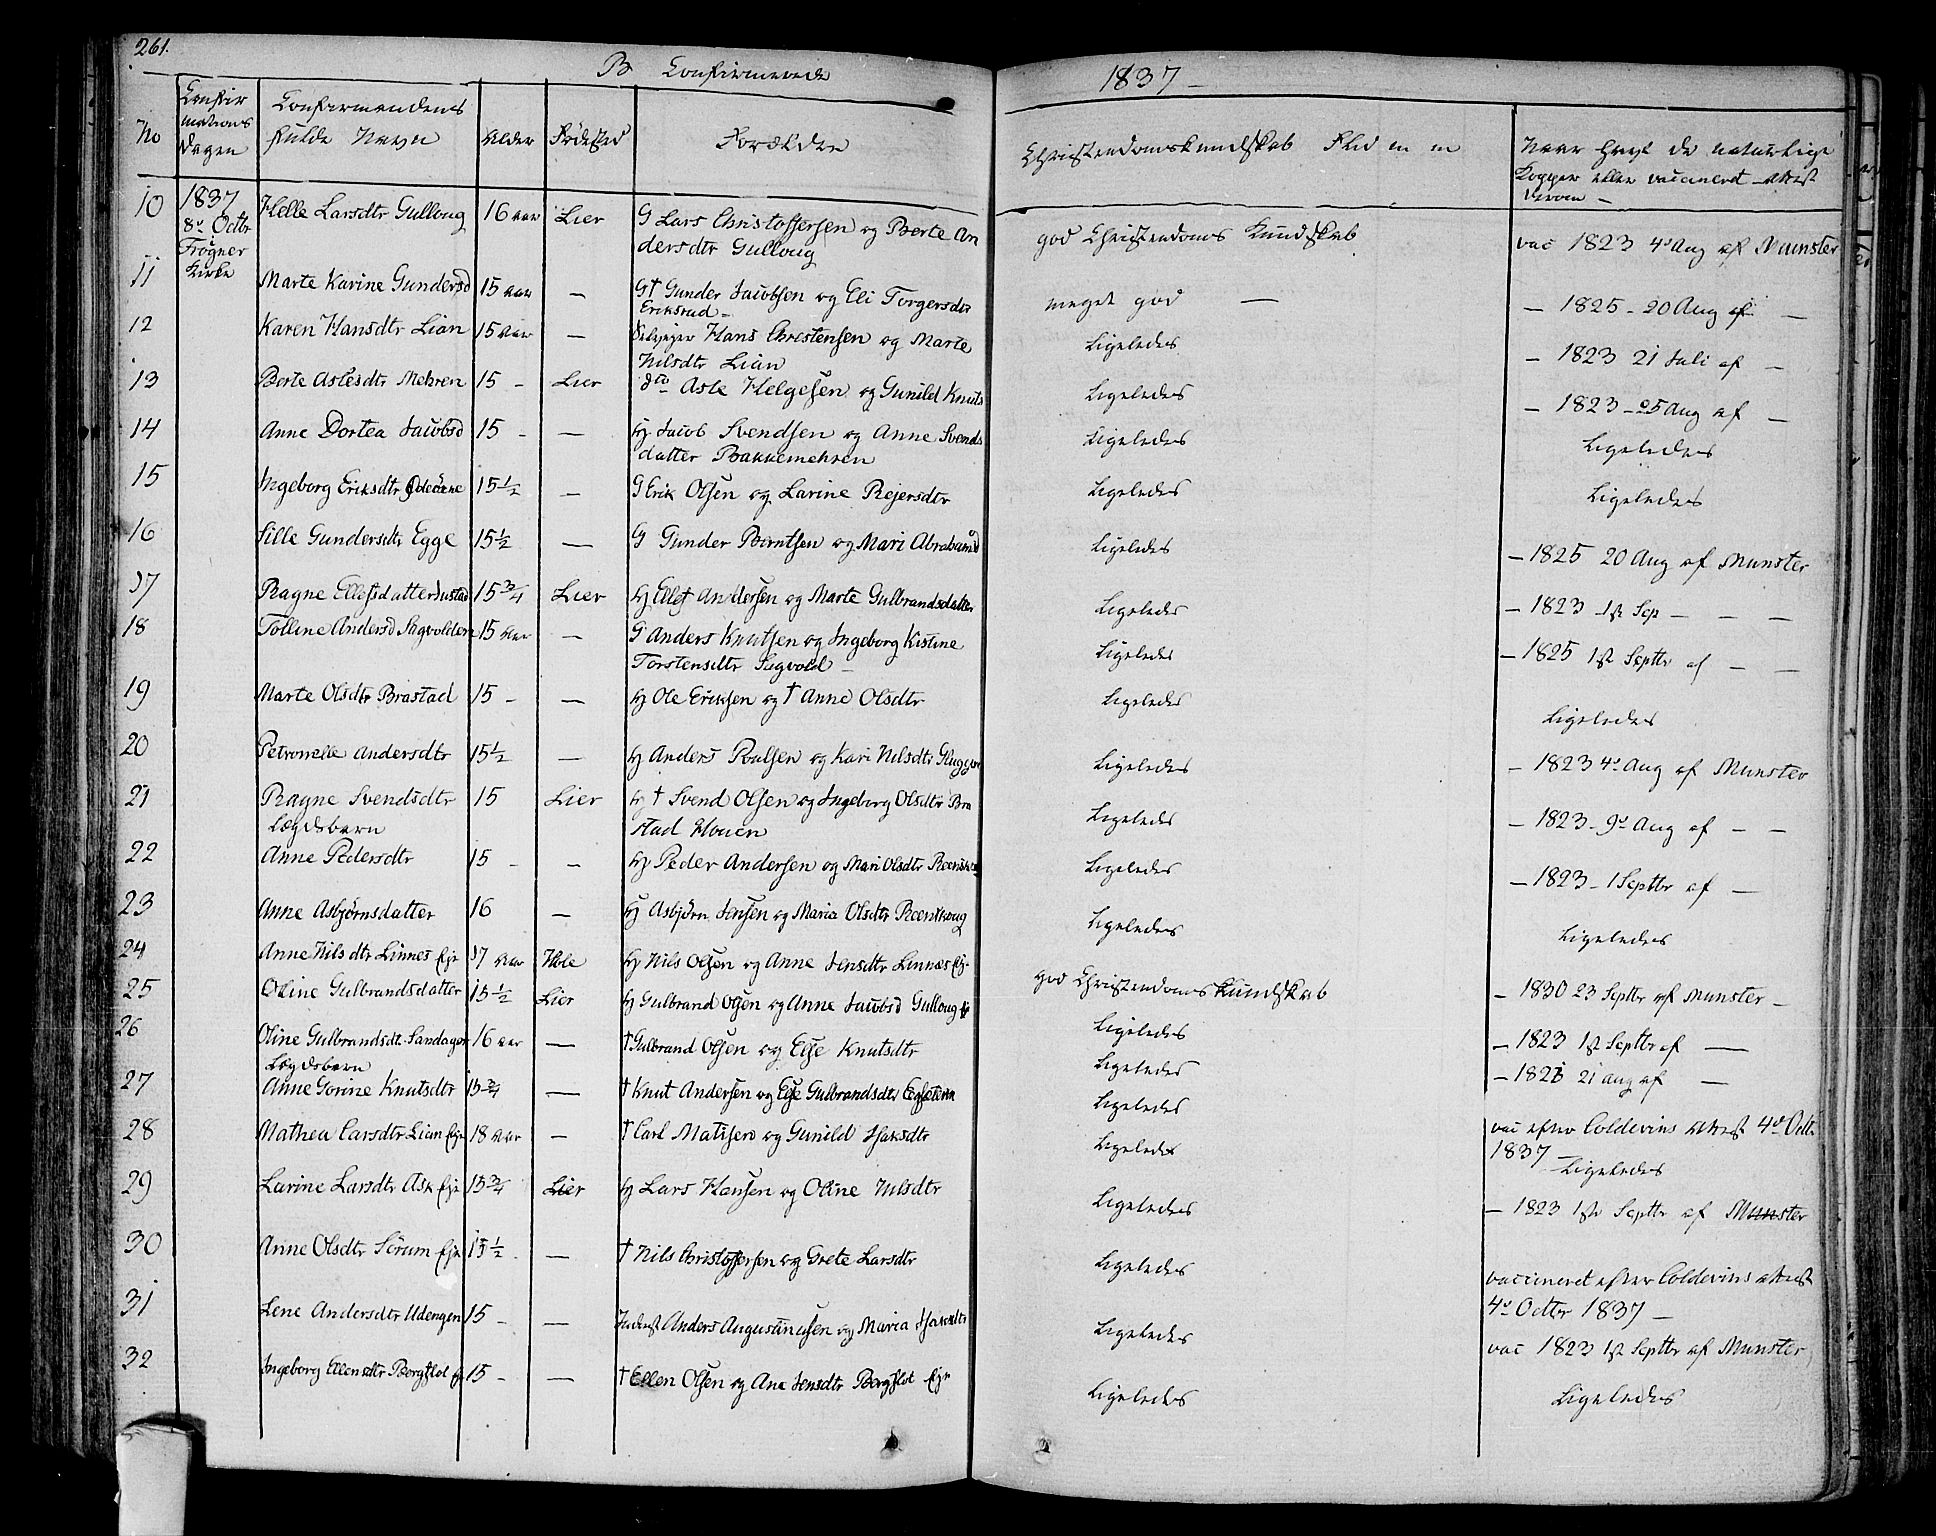 261.
B Confirmerede 1837 -
No Confirmations Dagen Confirmandens fulde Navn Alder Fødested Forældre Christendomskundskab Flid m m Naar havt de naturlige Kopper eller vaccineret - Attest derom -
10 1837 8de Octbr Frogner Kirke Helle Larsdtr Gulloug 16 aar Lier G Lars Christoffersen og Berte Andersdtr Gulloug god Christendoms Kundskab vac 1823 4de Aug af Munster
11 Marte Karine Gundersd 15 aar — G † Gunder Jacobsen og Eli Torgersdtr Eriksrud - meget god — — 1825 - 20 Aug af —
12 Karen Hansdtr Lian 15 aar — Selvejer Hans Christensen og Marte Nilsdtr Lian Ligeledes — 1823 21 Juli af —
13 Berte Aslesdtr Mehren 15 - Lier dto Asle Helgesen og Gunild Knuts Ligeledes — 1823 - 25 Aug af —
14 Anne Dortea Jacobsd 15 - — Hj Jacob Svendsen og Anne Svends datter Bakkemehren Ligeledes Ligeledes
15 Ingeborg Eriksdtr 15 1/2 — G Erik Olsen og Larine Rejersdtr Ligeledes Ligeledes
16 Sille Gundersdtr Egge 15 1/2 — G Gunder Berntsen og Mari Abrahamsd Ligeledes — 1825 20 Aug af Munster
17 Ragne Ellefsdatter Justad 15 3/4 Lier Hj Ellef Andersen og Marte Gulbrandsdatter Ligeledes — 1823 - 1st Sep — — —
18 Tolline Andersd Sagvolden 15 aar — G Anders Knutsen og Ingeborg Kistine Torstensdtr Sagvold — Ligeledes — 1825 1st Septbr af — —
19 Marte Olsdtr Brastad 15 - — Hj Ole Eriksen og † Anne Olsdtr Ligeledes Ligeledes
20 Petronelle Andersdtr 15 1/2 — Hj Anders Poulsen og Kari Nilsdtr Ligeledes — 1823 4de Aug af Munster
21 Ragne Svendsdtr Lægdsbarn 15 Lier Hj † Svend Olsen og Ingeborg Olsdtr Bra stad Houen Ligeledes — 1823 - 9de Aug af — —
22 Anne Pedersdtr 15 - — Hj Peder Andersen og Mari Olsdtr Ligeledes — 1823 - 1 Septbr af —
23 Anne Asbjørnsdatter 16 — Hj Asbjørn Jensen og Maria Olsdtr Reenskoug Ligeledes Ligeledes
24 Anne Nilsdtr Linnes Eje 17 aar Hole Hj Nils Olsen og Anne Jensdtr Linnes Ej. god Christendoms Kundskab — 1830 23 Septbr af Munster —
25 Oline Gulbrandsdatter 15 1/2 Lier Hj Gulbrand Olsen og Anne Jacobsd Gulloug Ej Ligeledes — 1823 1st Septbr af —
26 Oline Gulbrandsdt. Sandager Lægdsbarn 16 aar — † Gulbrand Olsen og Else Knutsdtr Ligeledes — 1821 21 Aug af —
27 Anne Gorine Knutsdtr 15 3/4 — † Knut Andersen og Else Gulbrandsdtr Ligeledes vac efter Coldevins Attest 4de Octbr 1837 —
28 Mathea Carsdtr Lian Eje 18 aar — † Carl Matisen og Gunild Isaksdtr Ligeledes Ligeledes
29 Larine Larsdtr Ask Eje 15 3/4 Lier Hj Lars Hansen og Oline Nilsdtr Ligeledes — 1823 1ste Septbr af Munster
30 Anne Olsdtr Sørum Eje 15 1/2 — † Nils Christoffersen og Grete Larsdtr Ligeledes vaccineret efter Coldevins attest 4de Octbr 1837 —
31 Lene Andersdtr Udengen 15 - — Inderst Anders Augustinusen og Maria Isaksdtr Ligeledes vac 1823 1st Septbr af Munster,
32 Ingeborg Ellensdtr Bergflot Ej 15 - — † Ellen Olsen og Ane Jensdtr Bergflot Eje Ligeledes Ligeledes